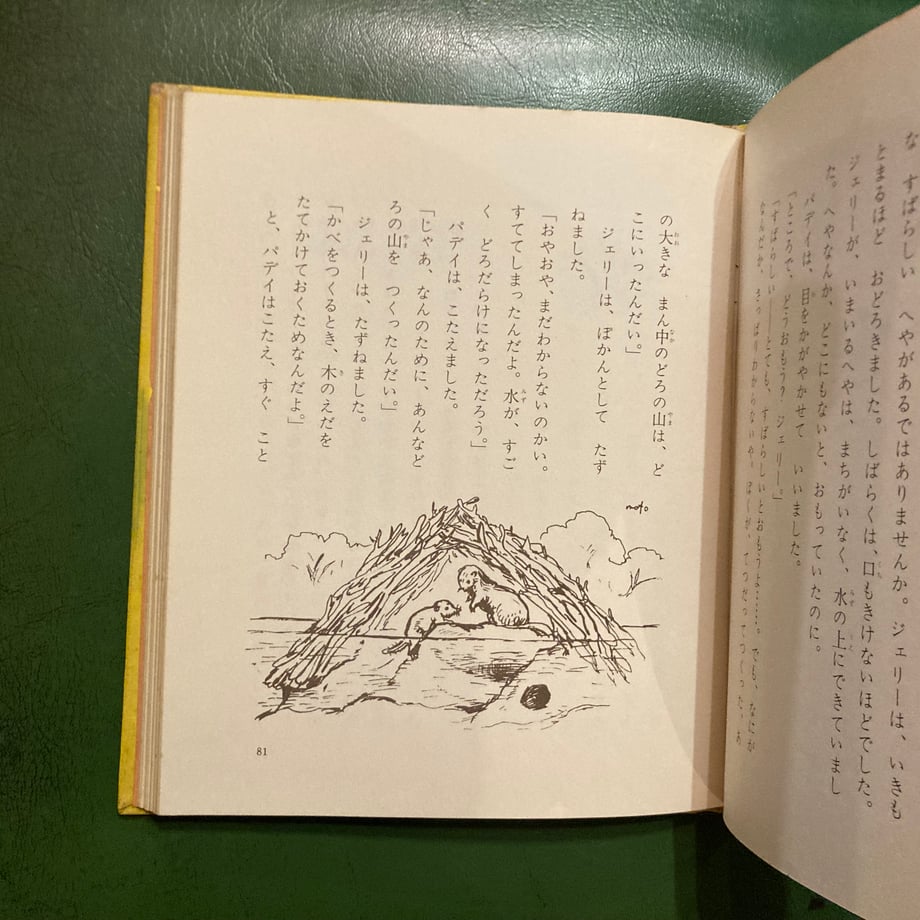 な すばらしい へやがあるではありませんか。ジェリーは、いきも
とまるほど おどろきました。しばらくは、口もきけないほどでした。
ジェリーが、いまいるへやは、まちがいなく、水の上にできていまし
た。へやなんか、どこにもないと、おもっていたのに。
パデイは、目をかがやかせて いいました。
「ところで、どうおもう? ジェリー。」
「すばらしい——とても、すばらしいとおもうよ……。でも、なにが
なんだか、さっぱりわからないや。ぼくが、てつだってつくった、あ
の大きな まん中のどろの山は、ど
こにいったんだい。」
ジェリーは、ぽかんとして たず
ねました。
「おやおや、まだわからないのかい。
すててしまったんだよ。水が、すご
く どろだらけになっただろう。」
パデイは、こたえました。
「じゃあ、なんのために、あんなど
ろの山を つくったんだい。」
ジェリーは、たずねました。
「かべをつくるとき、木のえだを
たてかけておくためなんだよ。」
と、パデイはこたえ、すぐ こと
moto
81